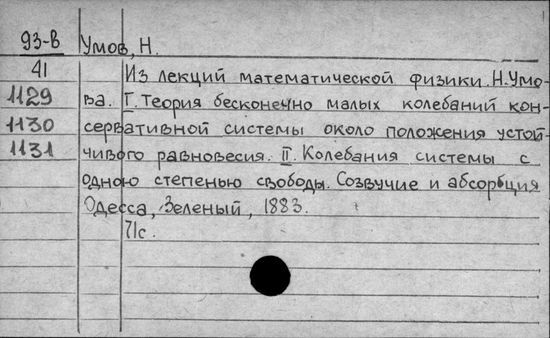 93-В Умов, Н.
41 Из лекций математической физики. Н. Умо-
1129 ва. I. Теория бесконечно малых колебаний кон-
1130 сервативной системы около положения устой-
1131 чивого равновесия. II. Колебания системы с
одною степенью свободы. Созвучие и абсорбция
Одесса, Зеленый, 1883.
71с.